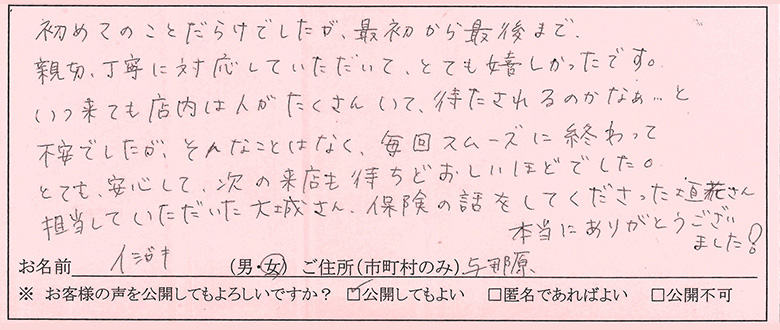 初めてのことだらけでしたが、最初から最後まで、
親切、丁寧に対応していただいて、とても嬉しかったです。
いつ来ても店内は人がたくさんいて、待たされるのかなぁ…と
不安でしたが、そんなことはなく、毎回スムーズに終わって
とても、安心して、次の来店も待ちどおしいほどでした。
担当していただいた大城さん、保険の話をしてくださった真花さん
本当にありがとうござい
ました!
お名前 イシガキ (男・女) ご住所(市町村のみ) 与那原
※ お客様の声を公開してもよろしいですか? ☑公開してもよい □匿名であればよい □公開不可